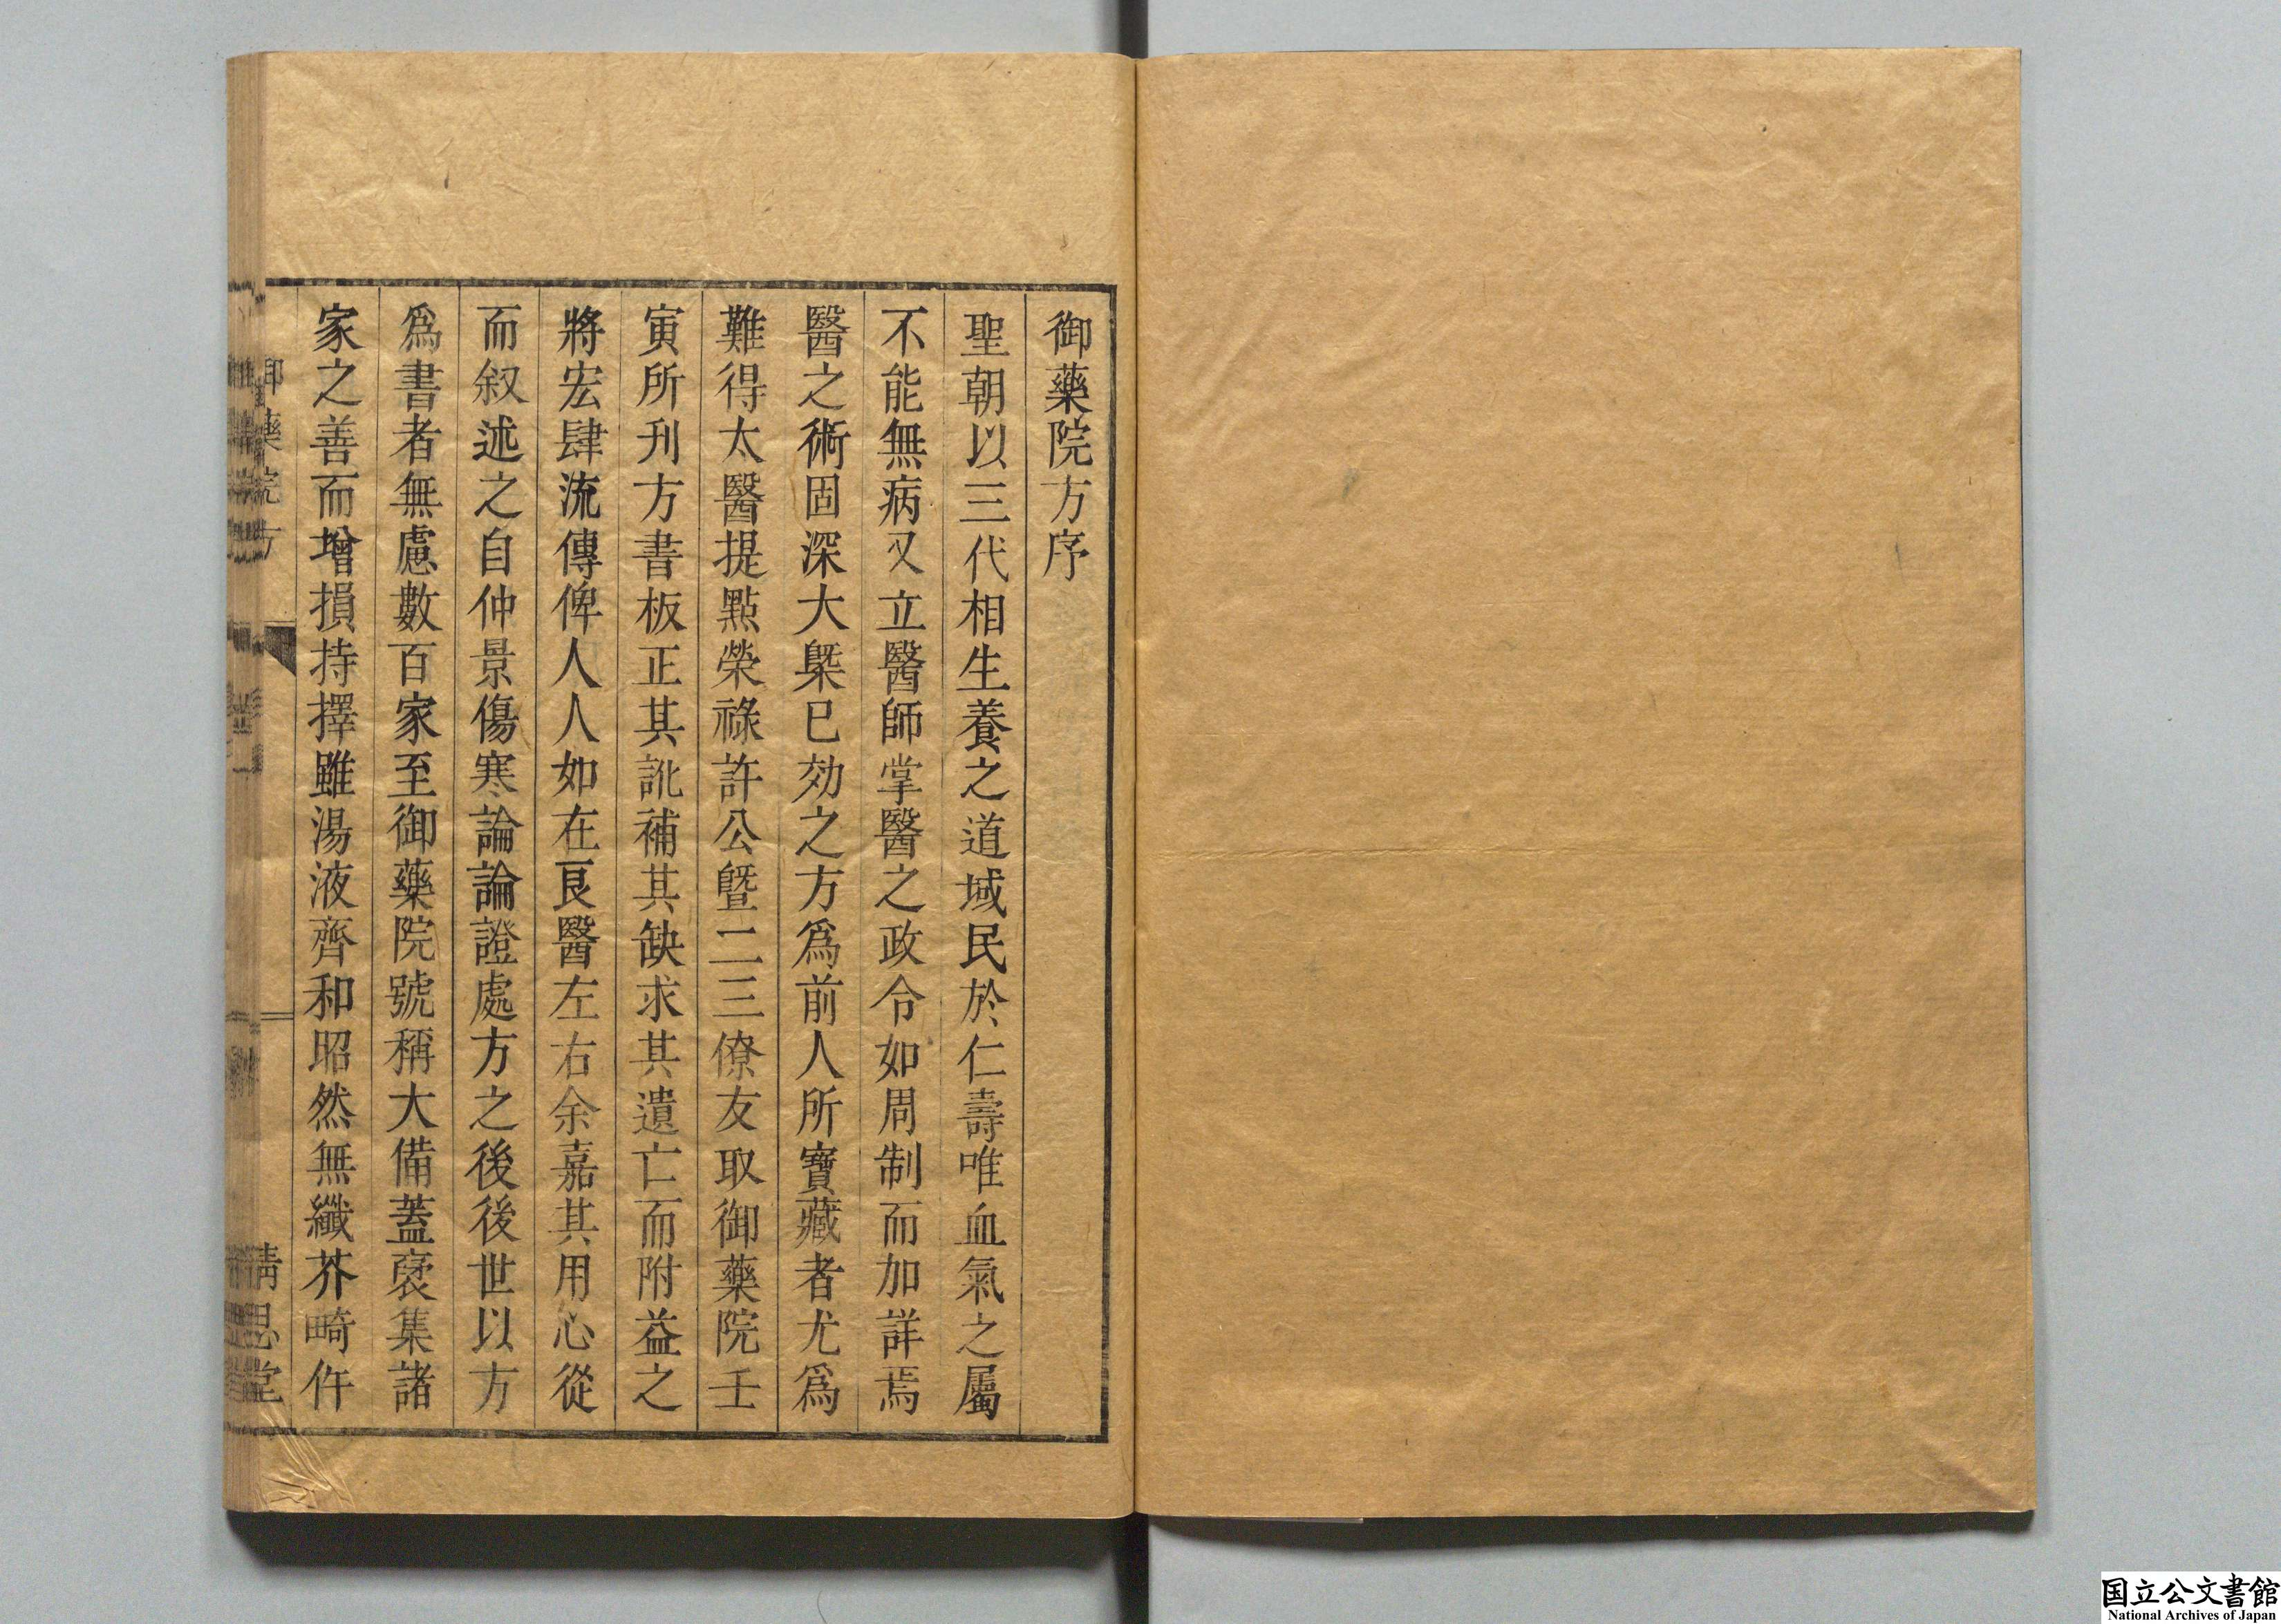 御藥院方序
聖朝以三代相生養之道域民於仁壽唯血氣之屬
不能無病又立醫師掌醫之政令如周制而加詳焉
醫之術固深大槩已効之方爲前人所寶藏者尤爲
難得太醫提點榮祿許公曁二三僚友取御藥院壬
寅所刋方書板正其訛補其缺求其遺亡而附益之
將宏肆流傳俾人人如在良醫左右余嘉其用心從
而叙述之自仲景傷寒論論證處方之後後世以方
爲書者無慮數百家至御藥院號稱大備蓋裒集諸
家之善而增損持擇雖湯液齊和昭然無纖芥畸仵
御藥院方
精思堂
国立公文書館
National Archives of Japan